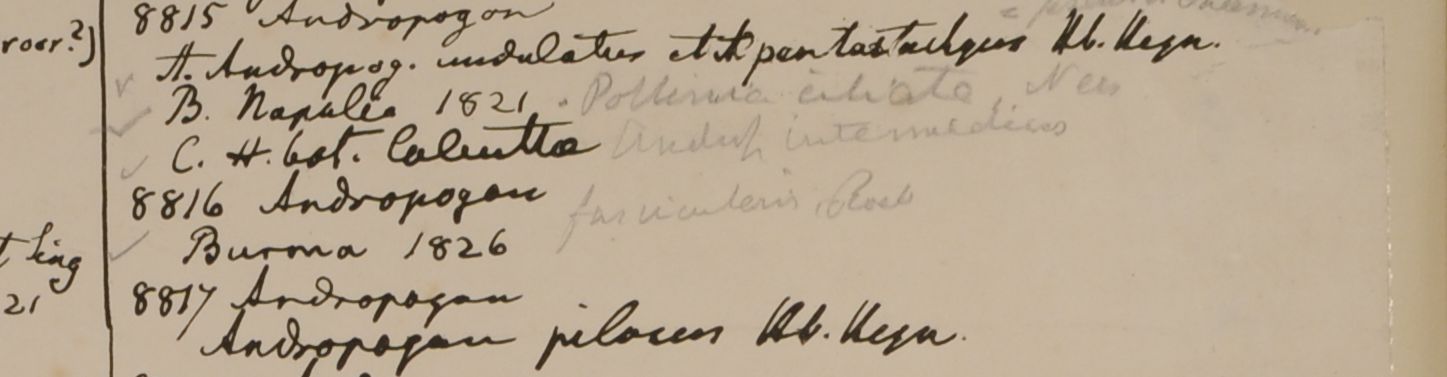 8815 Andropogon
roxr?)
A. Andropog. undulatus et A pentastachyus Hb. Heyn.
B. Napalia 1821. Pollinia ciliata, Nees
C. H. bot. Calcutta Androp intermedius
8816 Andropogon fascicularis, Roxb
Burma 1826
t Sing
8817 Andropogon
21
Andropogon pilosus Hb. Heyn.